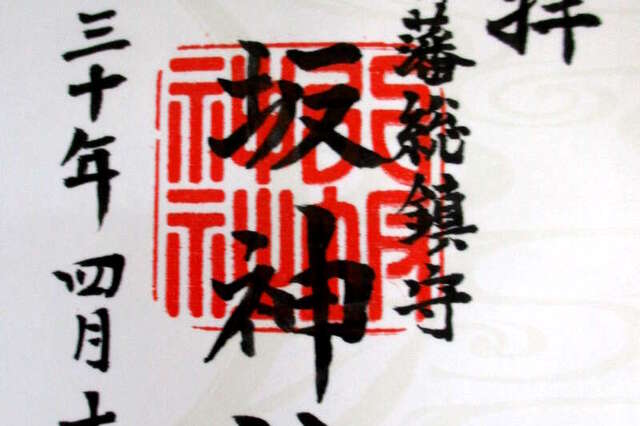 拝
藩総鎮守
坂神
三十年四月十